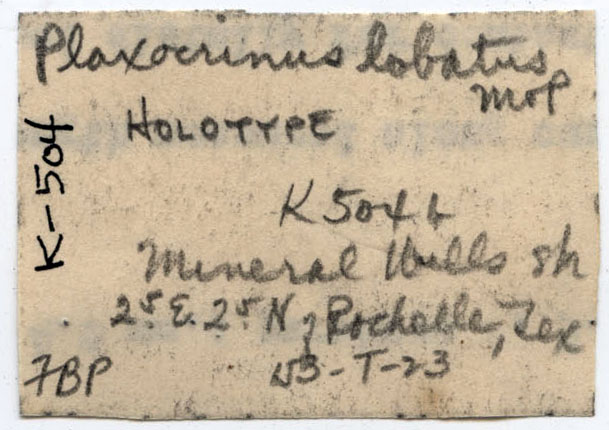 Plaxocrinus lobatus
M&P
HOLOTYPE
K-504
K504
Mineral Wells sh
2.5 E. 2.5 N, Rochelle, Tex
-T-23
FBP